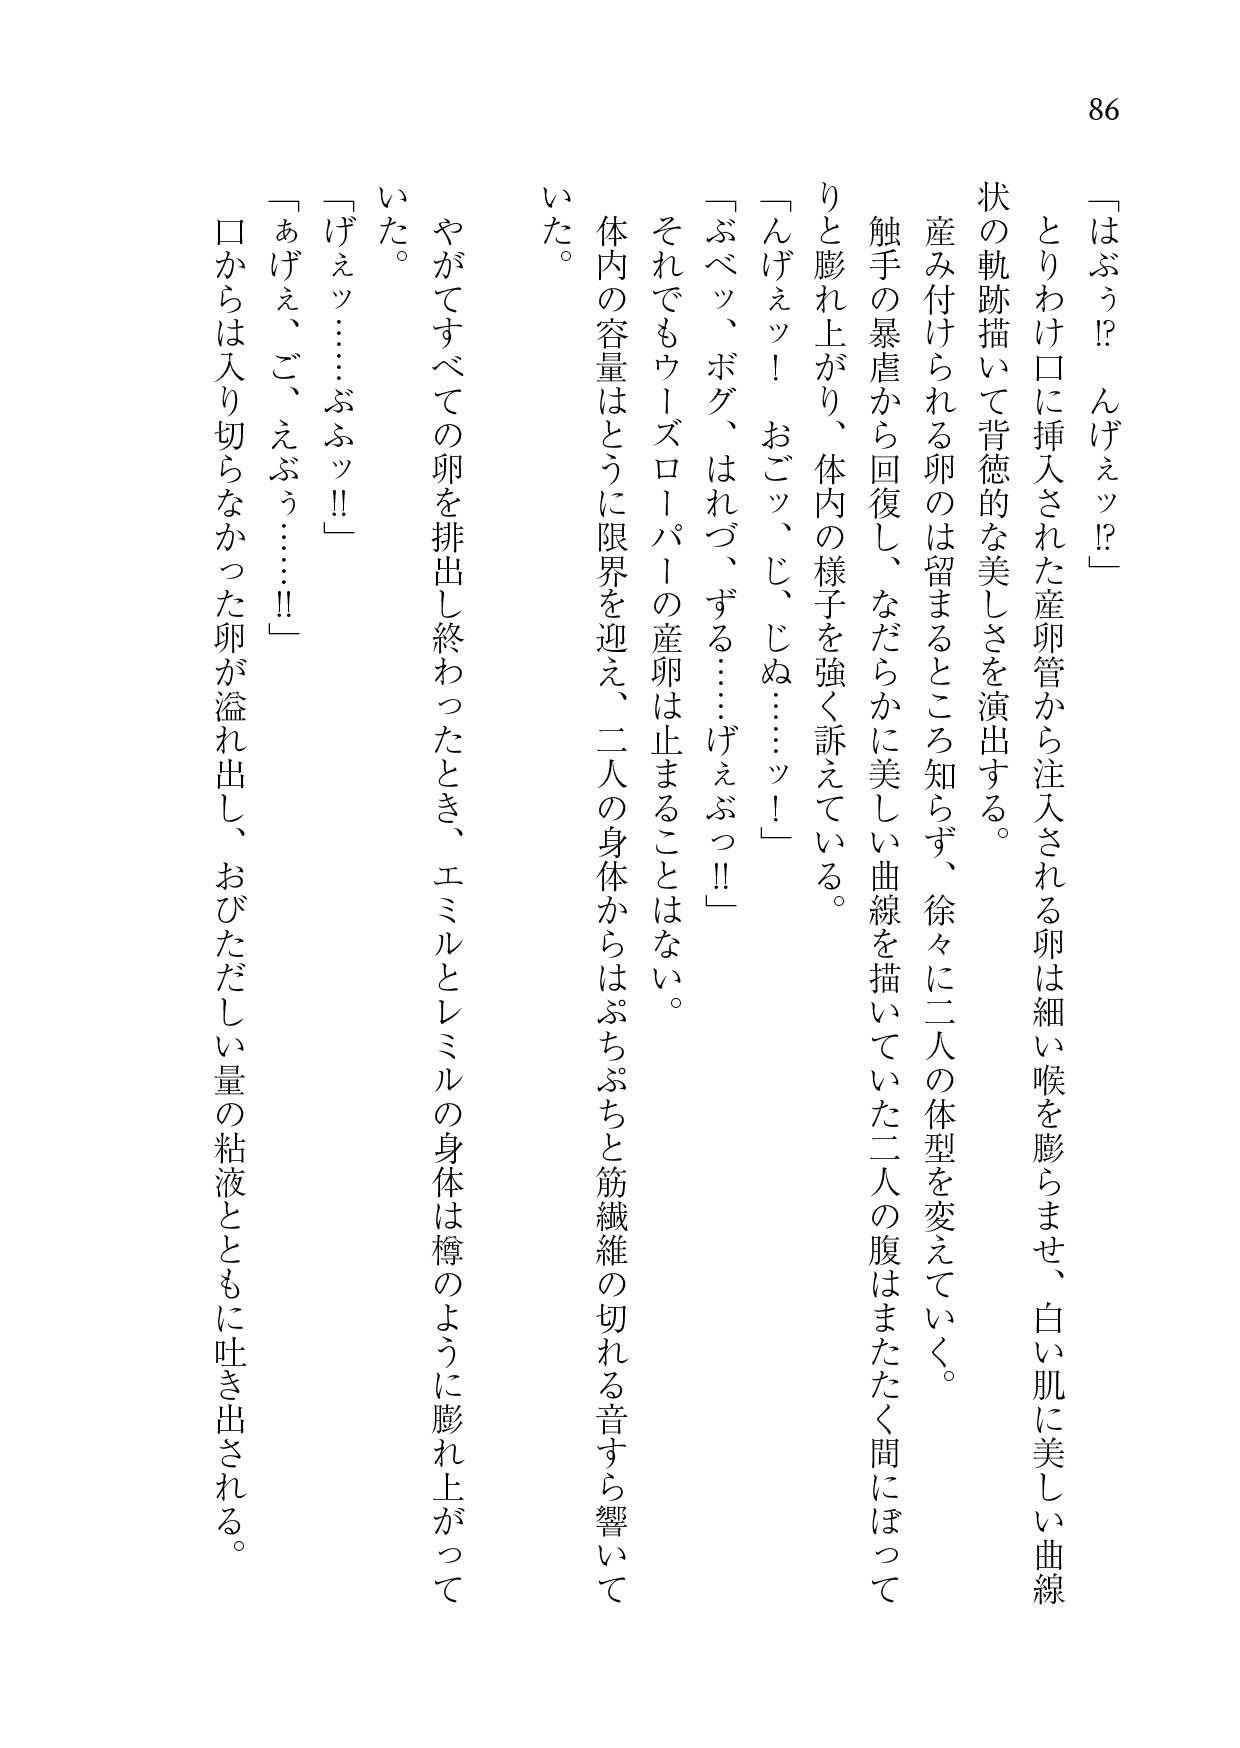 86
「はぶぅ!?　んげぇッ!?」
　とりわけ口に挿入された産卵管から注入される卵は細い喉を膨らませ、白い肌に美しい曲線
状の軌跡描いて背徳的な美しさを演出する。
　産み付けられる卵のは留まるところ知らず、徐々に二人の体型を変えていく。
　触手の暴虐から回復し、なだらかに美しい曲線を描いていた二人の腹はまたたく間にぼって
りと膨れ上がり、体内の様子を強く訴えている。
「んげぇッ！　おごッ、じ、じぬ……ッ！」
「ぶべッ、ボグ、はれづ、ずる……げぇぶっ!!」
　それでもウーズローパーの産卵は止まることはない。
　体内の容量はとうに限界を迎え、二人の身体からはぷちぷちと筋繊維の切れる音すら響いて
いた。
　やがてすべての卵を排出し終わったとき、エミルとレミルの身体は樽のように膨れ上がって
いた。
「げぇッ……ぶふッ!!」
「あげぇ、ご、えぶぅ……!!」
　口からは入り切らなかった卵が溢れ出し、おびただしい量の粘液とともに吐き出される。